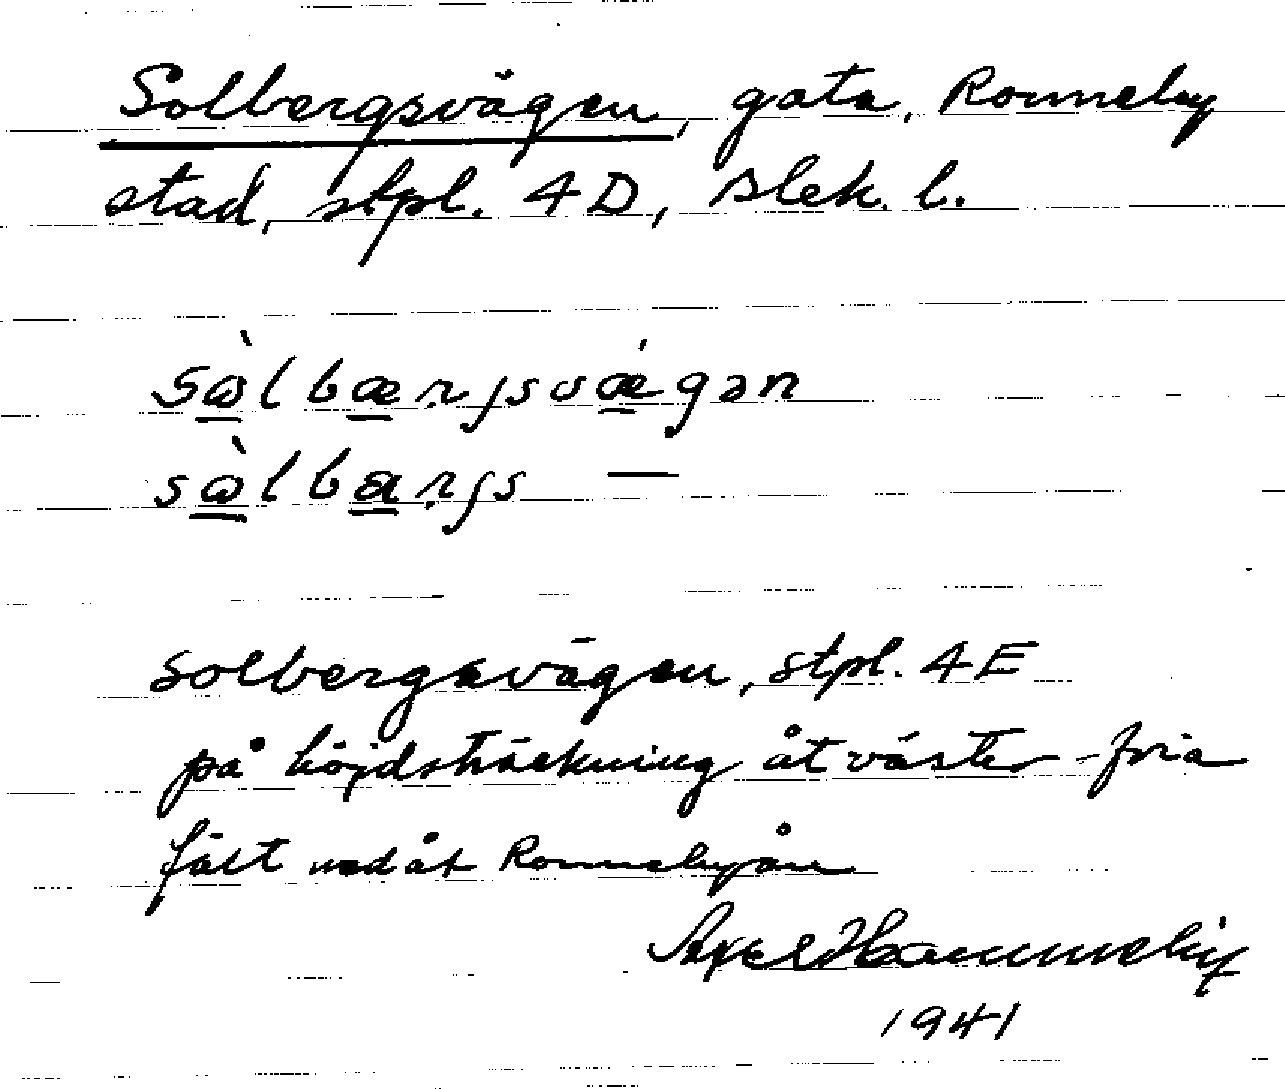 Solbergsvägen, gata, Ronneby
stad, stpl. 4D, Blek. l.
sὼlbærɡsvǽgən
sὼlbargs —
Solbergsvägen, stpl. 4E
på höjdsträckning åt väster fria
fält nedåt Ronnebyån
Axel Hammelin
1941